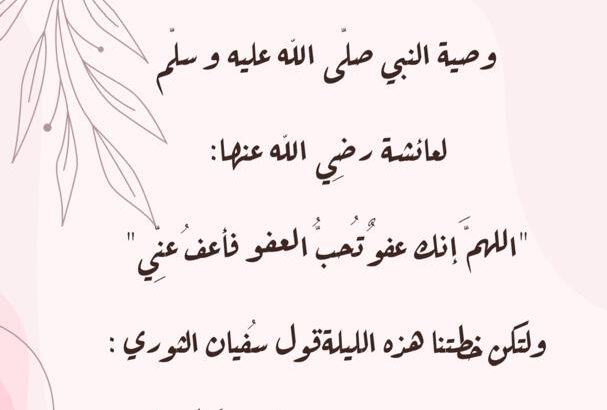 وصية النبي صلّى اللّه عليه و سلّم
لعائشة رضِي اللّه عنها:
"اللهمَّ إنك عفوٌ تُحبُّ العفو فأعفُ عنِّي"
ولتكن خطتنا هزه الليلةقول سفُيان الثوري :